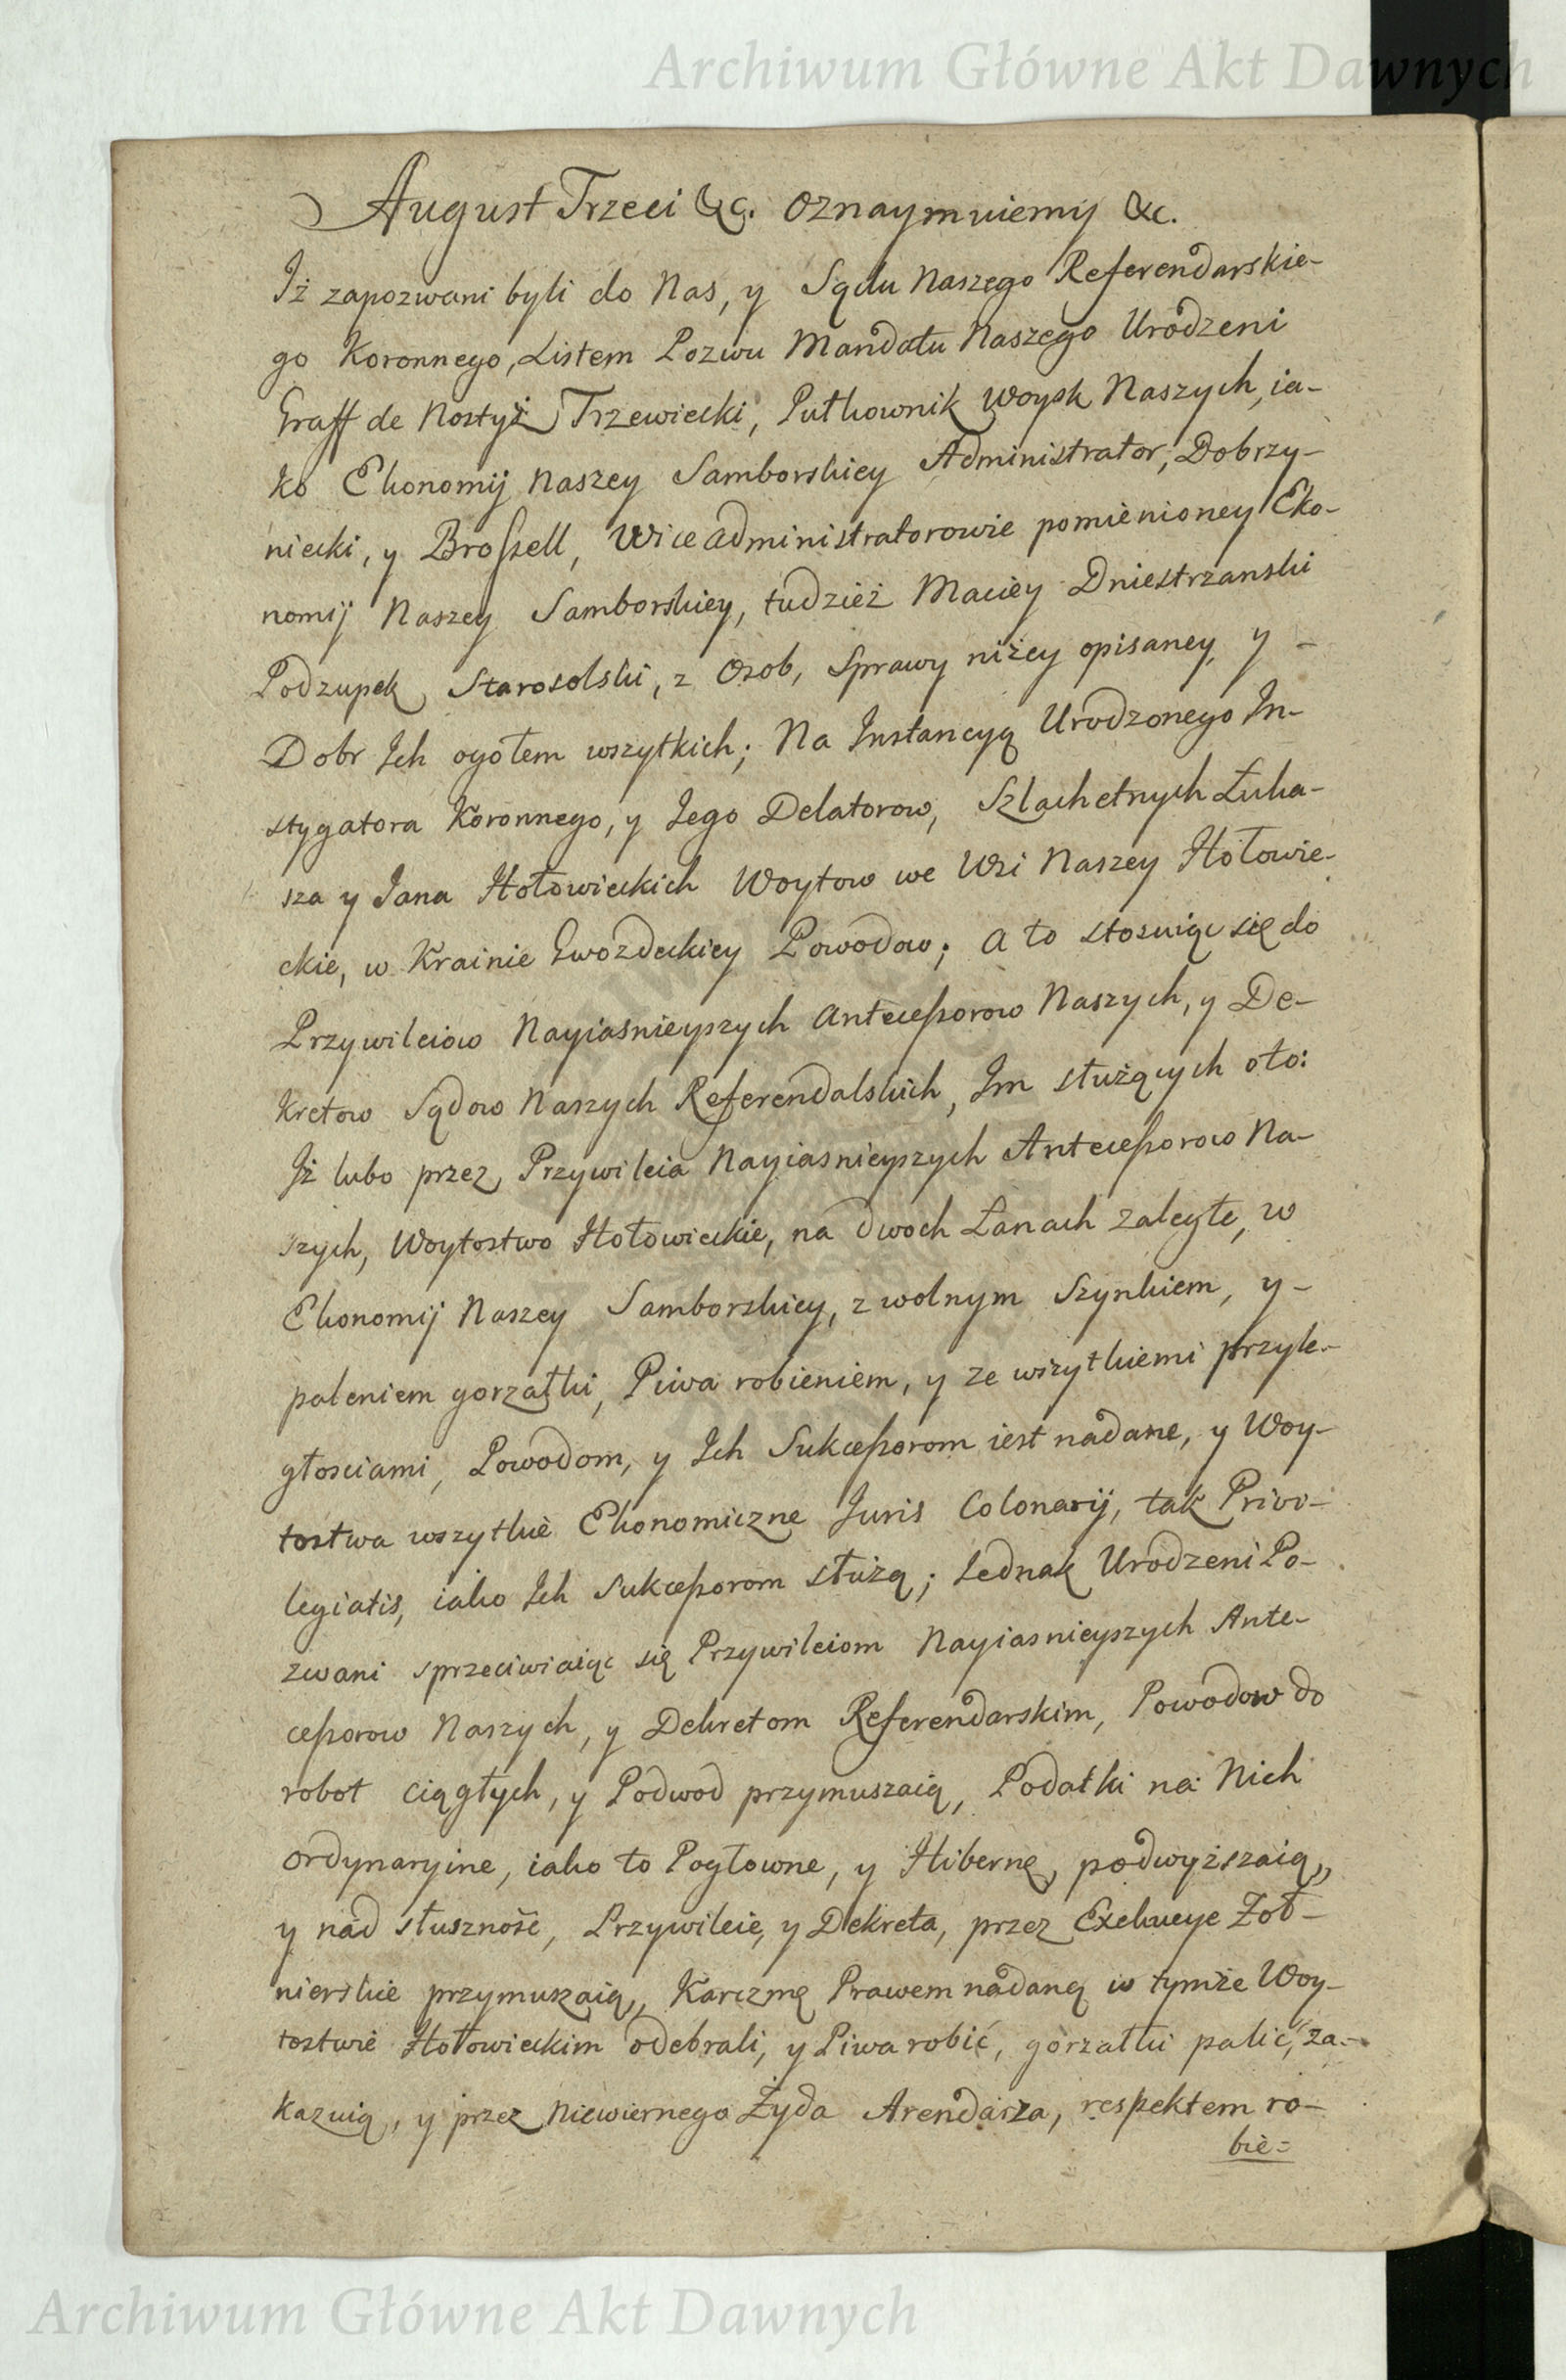 Archiwum Główne Akt Dawnych
August Trzeci &c. Oznaymuiemy &c.
Iż zapozwani byli do Nas, y Sądu Naszego Referendarskie-
go Koronnego, Listem Pozwu Mandatu Naszego Urodzeni
Graff de Nostyż Trzewiecki, Pułkownik Woysk Naszych, ia-
ko Ekonomij Naszey Samborskiey Administrator, Dobrzy-
niecki, y Broszell, Wice administratorowie pomienioney Eko-
nomij Naszey Samborskiey, tudzież Maciey Dniestrzanski
Podzupek Starosolski, z Osob, Sprawy niżey opisaney, y -
Dobr Ich ogołem wszytkich; Na Instancyą Urodzonego In-
stygatora Koronnego, y Jego Delatorow, Szlachetnych Łuka-
sza y Jana Hołowieckich Woytow we Wsi Naszey Hołowie-
ckie, w Krainie Gwozdeckiey Powodow; a to stosuiąc się do
Przywileiow Nayiasnieyszych Antecessorow Naszych, y De-
kretow Sądow Naszych Referendalskich, Im służących oto:
Iż lubo przez Przywileia Nayiasnieyszych Antecessorow Na-
szych, Woytostwo Hołowieckie, na dwoch Łanach zaległe, w
Ekonomij Naszey Samborskiey, z wolnym Szynkiem, y -
paleniem gorzałki, Piwa robieniem, y ze wszytkiemi przyle-
głosciami, Powodom, y Ich Sukcessorom iest nadane, y Woy-
tostwa wszytkie Ekonomiczne Juris Colonarij, tak Privi-
legiatis, iako Ich Sukcessorom służą; Jednak Urodzeni Po-
zwani sprzeciwiaiąc się Przywileiom Nayiasnieyszych Ante-
cessorow Naszych, y Dekretom Referendarskim, Powodow do
robot ciągłych, y Podwod przymuszaią, Podatki na Nich
ordynaryine, iako to Pogłowne, y Hibernę, podwyższaią,
y nad słuszność, Przywileie, y Dekreta, przez Exekucye Żoł-
nierskie przymuszaią, Karczmę Prawem nadaną w tymże Woy-
tostwie Hołowieckim odebrali, y Piwa robić, gorzałki palić, za-
kazuią, y przez niewiernego Żyda Arendarza, respektem ro-
bie=
Archiwum Główne Akt Dawnych